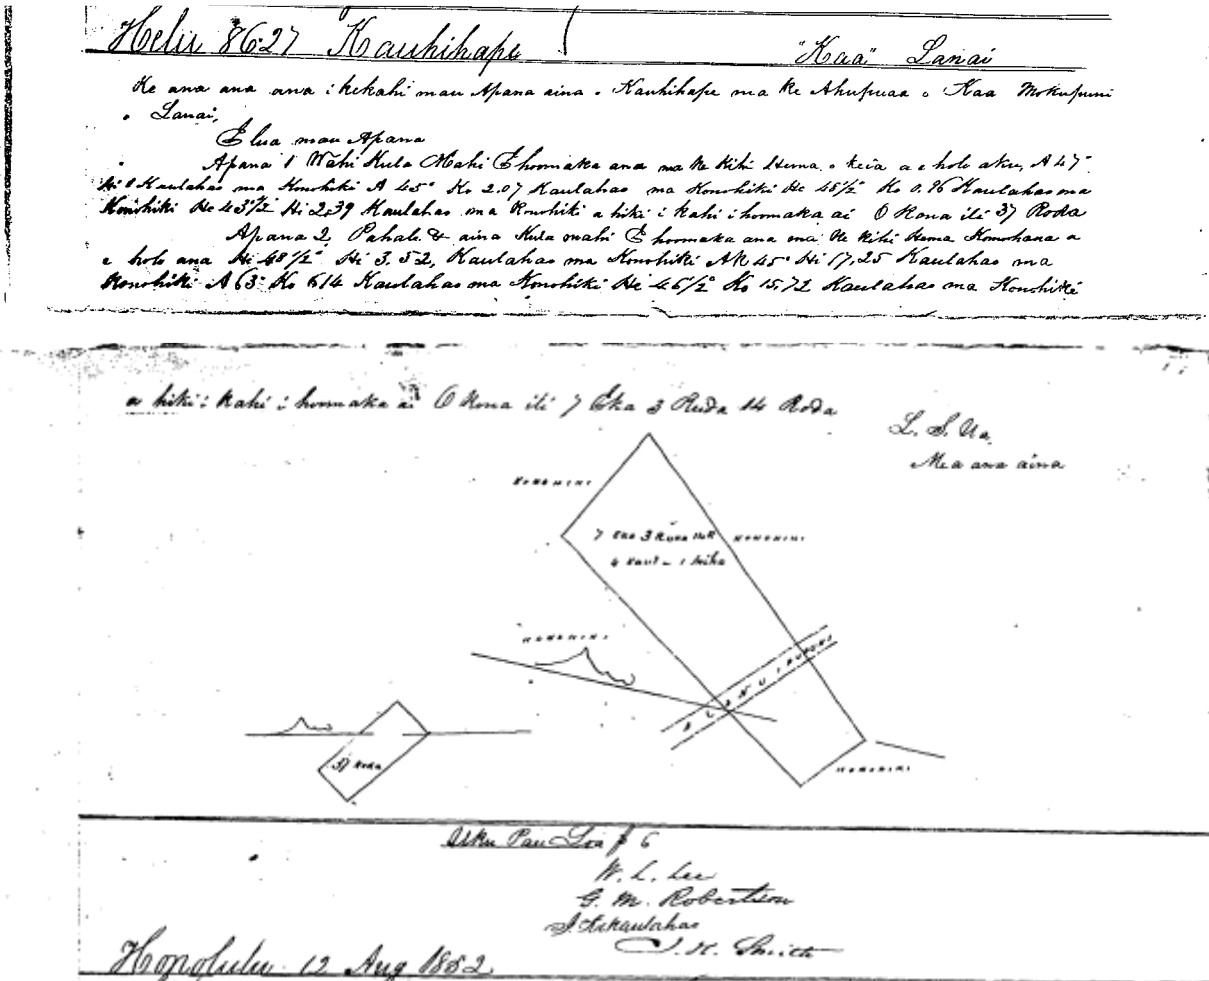 Helu 8627 Kauhihape "Kaa" Lanai
Ke ana ana ana i kekahi mau Apana aina o Kauhihape ma ke Ahupuaa o Kaa Mokupuni
o Lanai,
Elua mau Apana
Apana 1 Wahi Kula Mahi E hoomaka ana ma ke Kihi Hema o keia a e holo aku, A 47°
Hi 1 Kaulahao ma Konohiki A 45° Ko 2.07 Kaulahao ma Konohiki He 48½° Ko 0.96 Kaulahao ma
Konohiki He 43½° Hi 2,39 Kaulahao ma Konohiki a hiki i kahi i hoomaka ai O Kona ili 37 Roda
Apana 2, Pahale & aina Kula mahi E hoomaka ana ma ke Kihi Hema Komohana a
e holo ana Hi 48½° Hi 3.52, Kaulahao ma Konohiki AK 45° Hi 17.25 Kaulahao ma
Konohiki A 63° Ko 6.14 Kaulahao ma Konohiki He 46½° Ko 15.72 Kaulahao ma Konohiki
a hiki i kahi i hoomaka ai O Kona ili 7 Eka 3 Ruda 14 Roda
L. S. Ua
Mea ana aina
KONOHIKI
7 Eka 3 Ruda 14 R KONOHIKI
4 Kaul = 1 Iniha
KONOHIKI
ALANUI AUPUNI
37 Roda
KONOHIKI
Uku Pau Loa $ 6
W. L. Lee
G. M. Robertson
J. Kekaulahao
J. H. Smith
Honolulu 12 Aug 1852